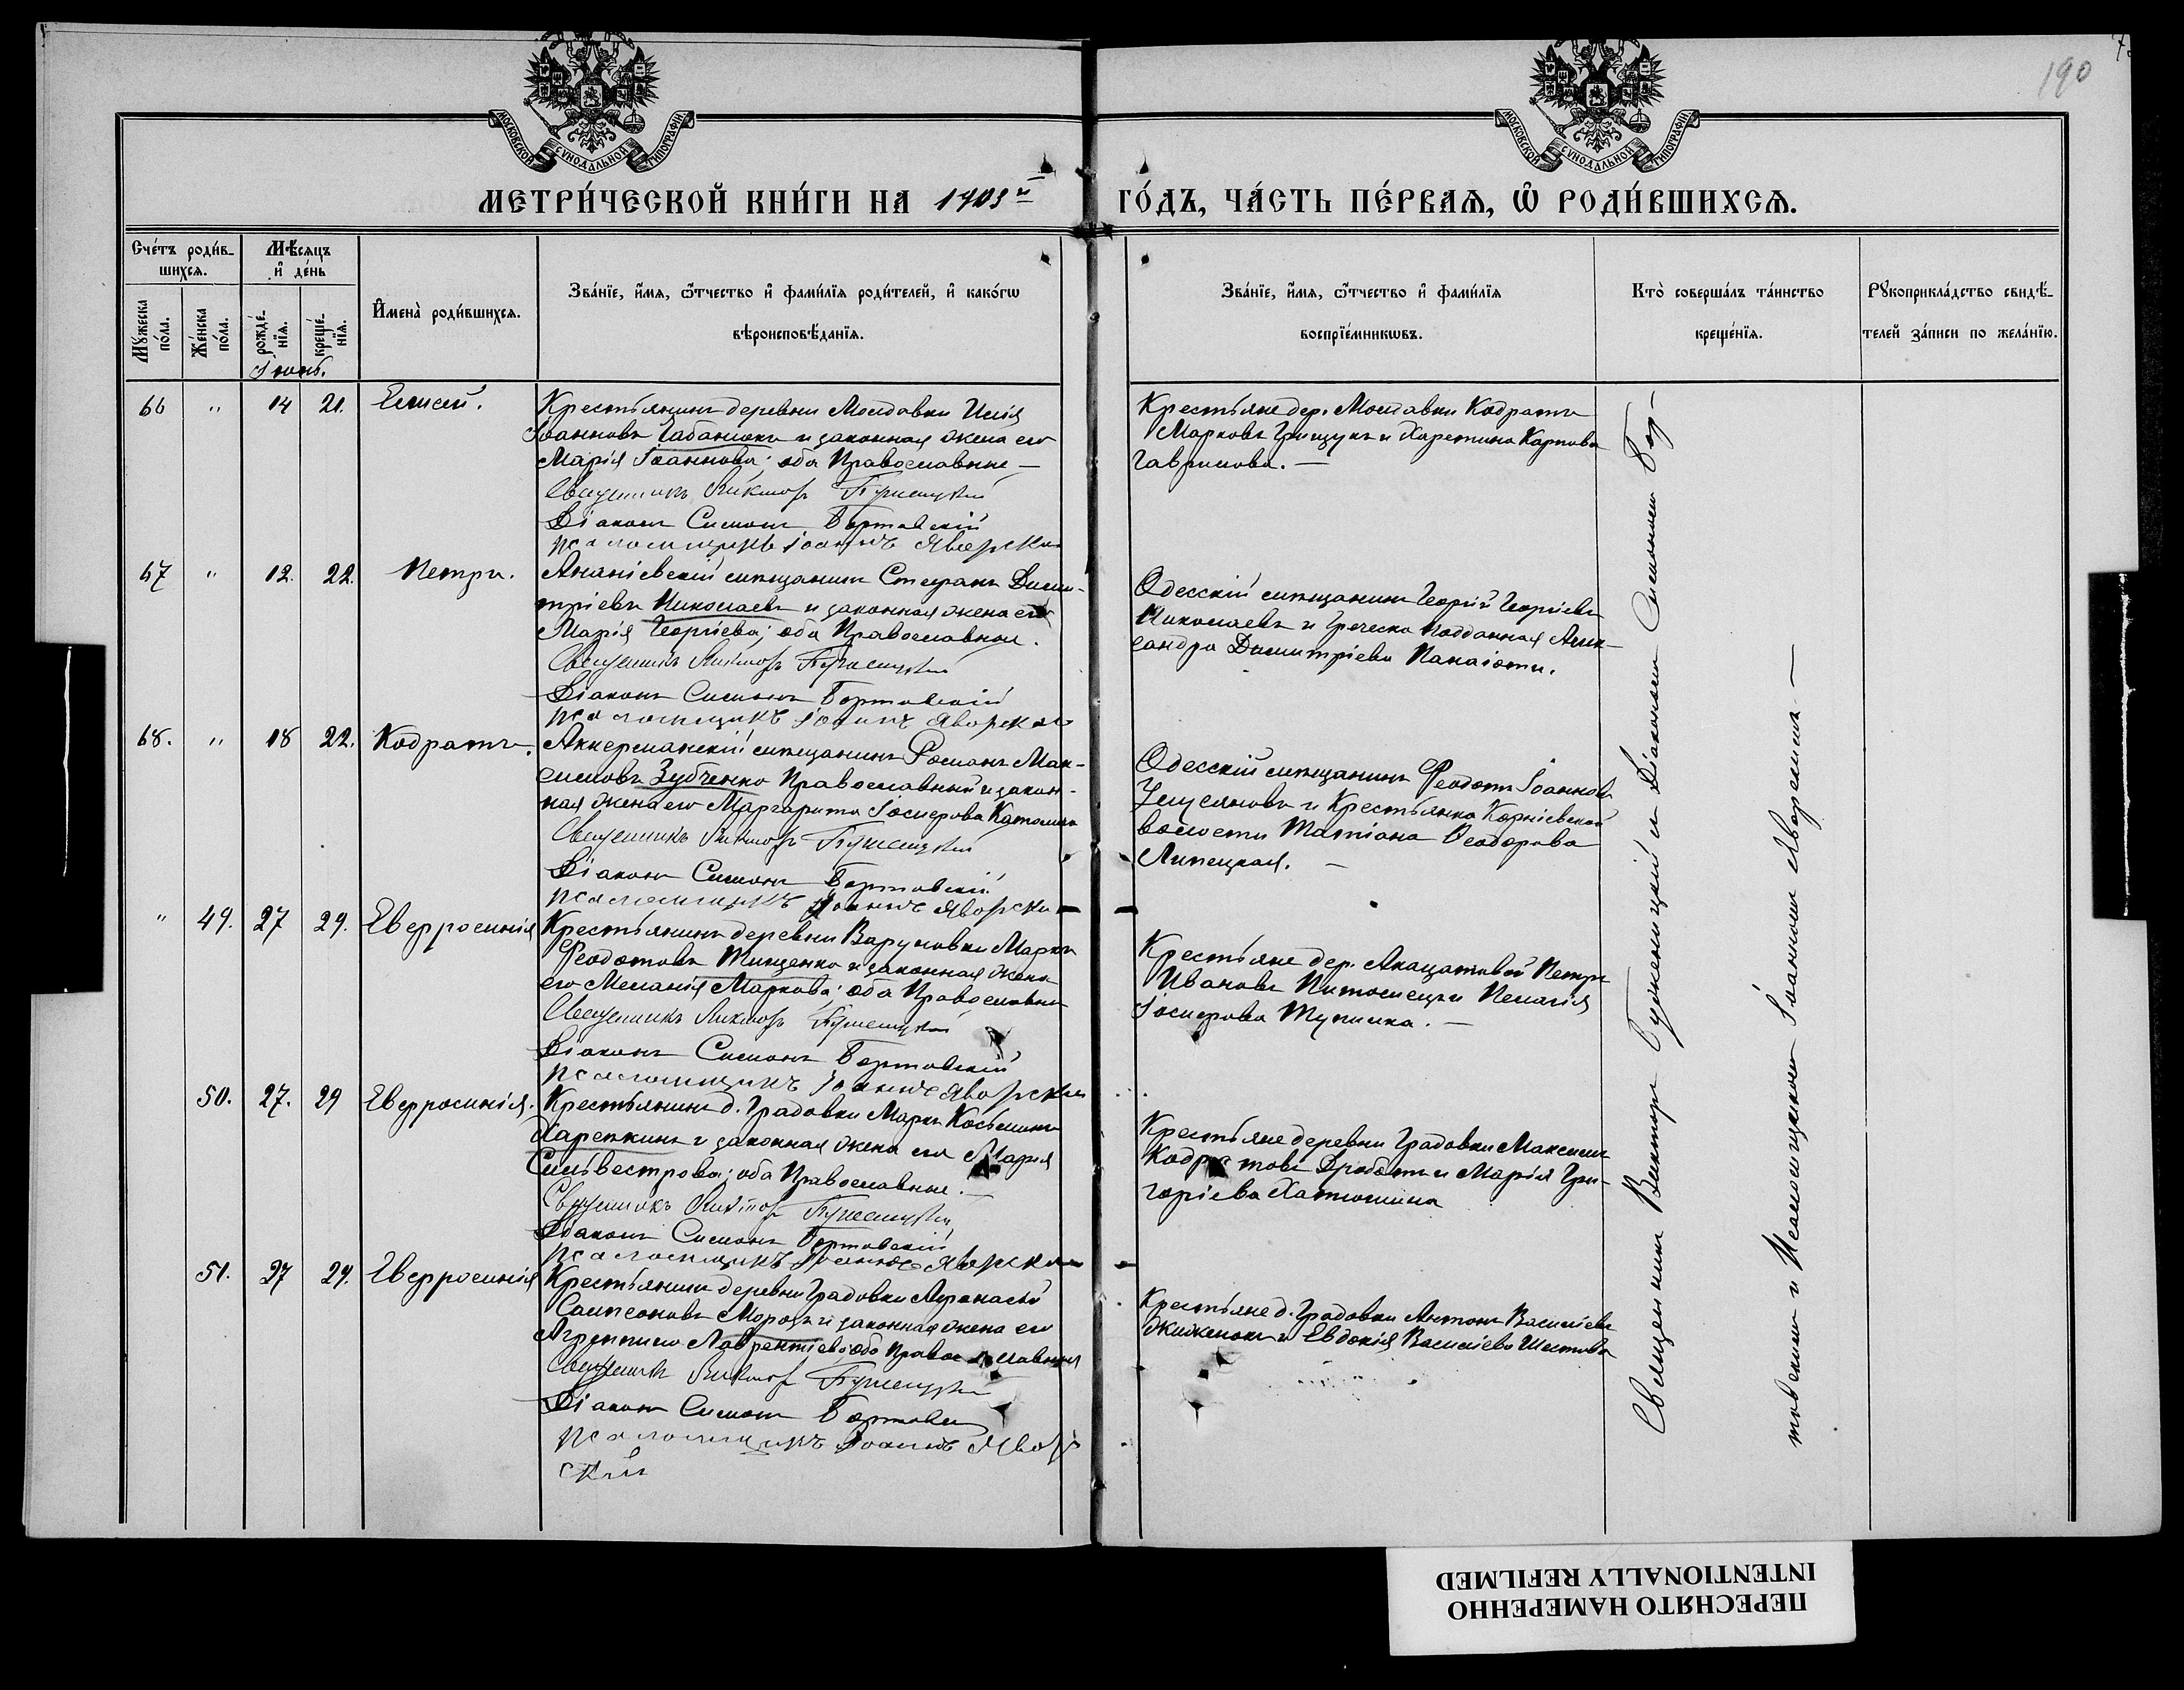 190
МОСКОВСКОЙ СУНОДАЛЬНОЙ ТИПОГРАФІИ
МОСКОВСКОЙ СУНОДАЛЬНОЙ ТИПОГРАФІИ
МЕТРИ́ЧЕСКОЙ КНИ́ГИ НА 1903й
ГО́ДЪ, ЧА́СТЬ ПЕ́РВАѦ, Ѡ҆ РОДИ́ВШИХСѦ.
Сче́тъ роди́в-
шихсѧ.
Мꙋ́жеска по́ла.
Же́нска по́ла.
Мѣ́сѧцъ
и҆ де́нь
рожде́-
нїѧ.
креще́-
нїѧ.
Іюнь.
И҆мена̀ роди́вшихсѧ.
Зва́нїе, и҆́мѧ, ѻ҆́тчество и҆ фами́лїѧ роди́телей, и҆ како́гѡ
вѣроисповѣ́данїѧ.
Зва́нїе, и҆́мѧ, ѻ҆́тчество и҆ фами́лїѧ
воспрїе́мникѡвъ.
Кто̀ соверша́лъ та́инство
креще́нїѧ.
Рꙋкоприкла́дство свидѣ́-
телей за́писи по жела́нїю.
66 " 14 21. Елисей.
Крестьянинъ деревни Молдовки Илія
Іоанновъ Чабанюкъ и законная жена его
Марія Іоаннова; оба Православные —
Священникъ Виктор
Діаконъ Симонъ Бортовскій
псаломщикъ Іоаннъ Яворскій
Крестьяне дер. Молдавки Кодратъ
Марковъ Грищукъ и Харетина Карпова
Гаврилова. —
67 " 12. 22. Петръ.
Ананіевскій мѣщанинъ Стефанъ Дими-
тріевъ Николаевъ и законная жена его
Марія Георгіева; оба Православные.
Священникъ Виктор
Діаконъ Симонъ Бортовскій
псаломщикъ Іоаннъ Яворскій
Одесскій мѣщанинъ Георгій Георгіевъ
Николаевъ и Греческо подданная Алек-
сандра Димитріева Панаіоти.
68. " 18 22. Кодратъ.
Аккерманскій мѣщанинъ Романъ Мак-
симовъ Зубченко Православный и закон-
ная жена его Маргарита Іосифова
Священникъ Виктор
Діаконъ Симонъ Бортовскій
псаломщикъ Іоаннъ Яворскій
Одесскій мѣщанинъ Феодотъ Іоанновъ
и Крестьянка Корніевской
волости Татіана Феодорова
Липецкая. —
" 49. 27 29. Евфросинія
Крестьянинъ деревни Варуновки Маркъ
Феодотовъ Тищенко и законная жена
его Меланія Маркова; оба Православны
Священникъ Виктор
Діаконъ Симонъ Бортовскій
псаломщикъ Іоаннъ Яворскій
Крестьяне дер. Акацатовой Петръ
Ивановъ и Пелагія
Іосифова Тупчика. —
50. 27. 29 Евфросинія.
Крестьянинъ д. Градовки Маркъ Косьминъ
Харепкинъ и законная жена его Марія
Сильвестрова; оба Православные. —
Священникъ Виктор
Діаконъ Симонъ Бортовскій
псаломщикъ Іоаннъ Яворскій
Крестьяне деревни Градовки Максимъ
Кодратовъ Дроботъ и Марія Гри-
горіева Хатюшина
51. 27 29. Евфросинія
Крестьянинъ деревни Градовки Афанасій
Сампсоновъ Морозъ и законная жена его
Агриппина Лаврентіева; оба Православные
Священникъ Виктор
Діаконъ Симонъ Бортовскій
псаломщикъ Іоаннъ Явор-
скій
Крестьяне д. Градовки Антонъ Василіевъ
и Евдокія Василіева Шестова
Священникъ Викторъ Буженицкій и Діакономъ Симономъ Бор-
товскимъ и Псаломщикомъ Іоанномъ Яворскимъ —
ПЕРЕСНЯТО НАМЕРЕННО
INTENTIONALLY REFILMED